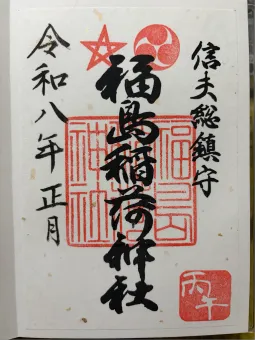 信夫総鎮守
福島稲荷神社
福島神社
令和八年正月
丙午